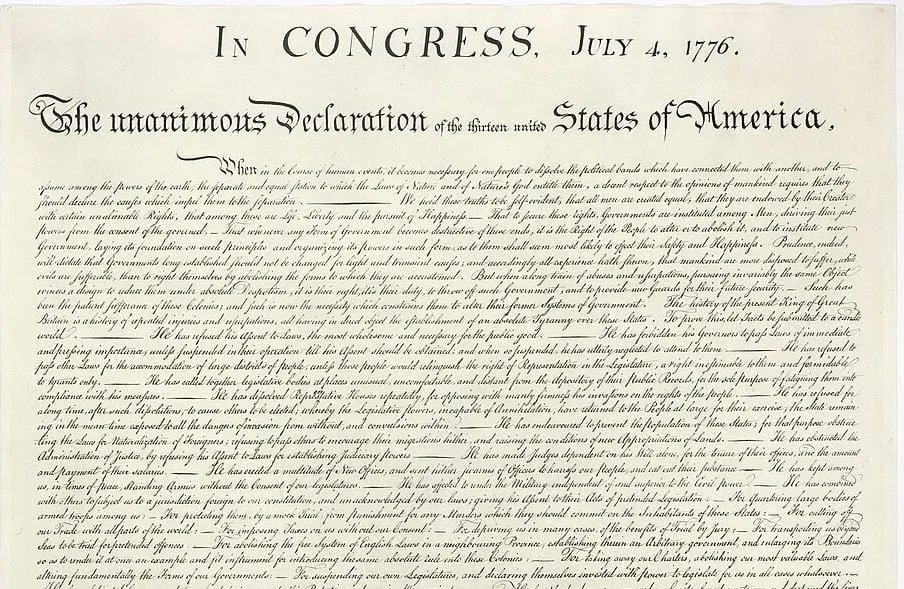 In CONGRESS, July 4, 1776.
The unanimous Declaration of the thirteen united States of America,
When in the Course of human events, it becomes necessary for one people to dissolve the political bands which have connected them with another, and to
assume among the powers of the earth, the separate and equal station to which the Laws of Nature and of Nature's God entitle them, a decent respect to the opinions of mankind requires that they
should declare the causes which impel them to the separation. ——— We hold these truths to be self-evident, that all men are created equal, that they are endowed by their Creator
with certain unalienable Rights, that among these are Life, Liberty and the pursuit of Happiness. — That to secure these rights, Governments are instituted among Men, deriving their just
powers from the consent of the governed, — That whenever any Form of Government becomes destructive of these ends, it is the Right of the People to alter or to abolish it, and to institute new
Government, laying its foundation on such principles and organizing its powers in such form, as to them shall seem most likely to effect their Safety and Happiness. Prudence, indeed,
will dictate that Governments long established should not be changed for light and transient causes; and accordingly all experience hath shewn, that mankind are more disposed to suffer, while
evils are sufferable, than to right themselves by abolishing the forms to which they are accustomed. But when a long train of abuses and usurpations, pursuing invariably the same Object
evinces a design to reduce them under absolute Despotism, it is their right, it is their duty, to throw off such Government, and to provide new Guards for their future security. — Such has
been the patient sufferance of these Colonies; and such is now the necessity which constrains them to alter their former Systems of Government. The history of the present King of Great
Britain is a history of repeated injuries and usurpations, all having in direct object the establishment of an absolute Tyranny over these States. To prove this, let Facts be submitted to a candid
world. ——— He has refused his Assent to Laws, the most wholesome and necessary for the public good. ——— He has forbidden his Governors to pass Laws of immediate
and pressing importance, unless suspended in their operation till his Assent should be obtained; and when so suspended, he has utterly neglected to attend to them. ——— He has refused to
pass other Laws for the accommodation of large districts of people, unless those people would relinquish the right of Representation in the Legislature, a right inestimable to them and formidable
to tyrants only. ——— He has called together legislative bodies at places unusual, uncomfortable, and distant from the depository of their public Records, for the sole purpose of fatiguing them into
compliance with his measures. ——— He has dissolved Representative Houses repeatedly, for opposing with manly firmness his invasions on the rights of the people. ——— He has refused for
a long time, after such dissolutions, to cause others to be elected; whereby the Legislative powers, incapable of Annihilation, have returned to the People at large for their exercise; the State remain-
ing in the mean time exposed to all the dangers of invasion from without, and convulsions within. ——— He has endeavoured to prevent the population of these States; for that purpose obstruc-
ting the Laws for Naturalization of Foreigners; refusing to pass others to encourage their migrations hither, and raising the conditions of new Appropriations of Lands. ——— He has obstructed the
Administration of Justice, by refusing his Assent to Laws for establishing Judiciary powers. ——— He has made Judges dependent on his Will alone, for the tenure of their offices, and the amount
and payment of their salaries. ——— He has erected a multitude of New Offices, and sent hither swarms of Officers to harrass our people, and eat out their substance. ——— He has kept among
us, in times of peace, Standing Armies without the Consent of our legislatures. ——— He has affected to render the Military independent of and superior to the Civil power. ——— He has combined
with others to subject us to a jurisdiction foreign to our constitution, and unacknowledged by our laws; giving his Assent to their Acts of pretended Legislation: — For Quartering large bodies of
armed troops among us: — For protecting them, by a mock Trial, from punishment for any Murders which they should commit on the Inhabitants of these States: — For cutting off
our Trade with all parts of the world: — For imposing Taxes on us without our Consent: — For depriving us in many cases, of the benefits of Trial by jury; — For transporting us beyond
Seas to be tried for pretended offences: — For abolishing the free System of English Laws in a neighbouring Province, establishing therein an Arbitrary government, and enlarging its Boundaries
so as to render it at once an example and fit instrument for introducing the same absolute rule into these Colonies: — For taking away our Charters, abolishing our most valuable Laws, and
altering fundamentally the Forms of our Governments: — For suspending our own Legislatures, and declaring themselves invested with power to legislate for us in all cases whatsoever. —